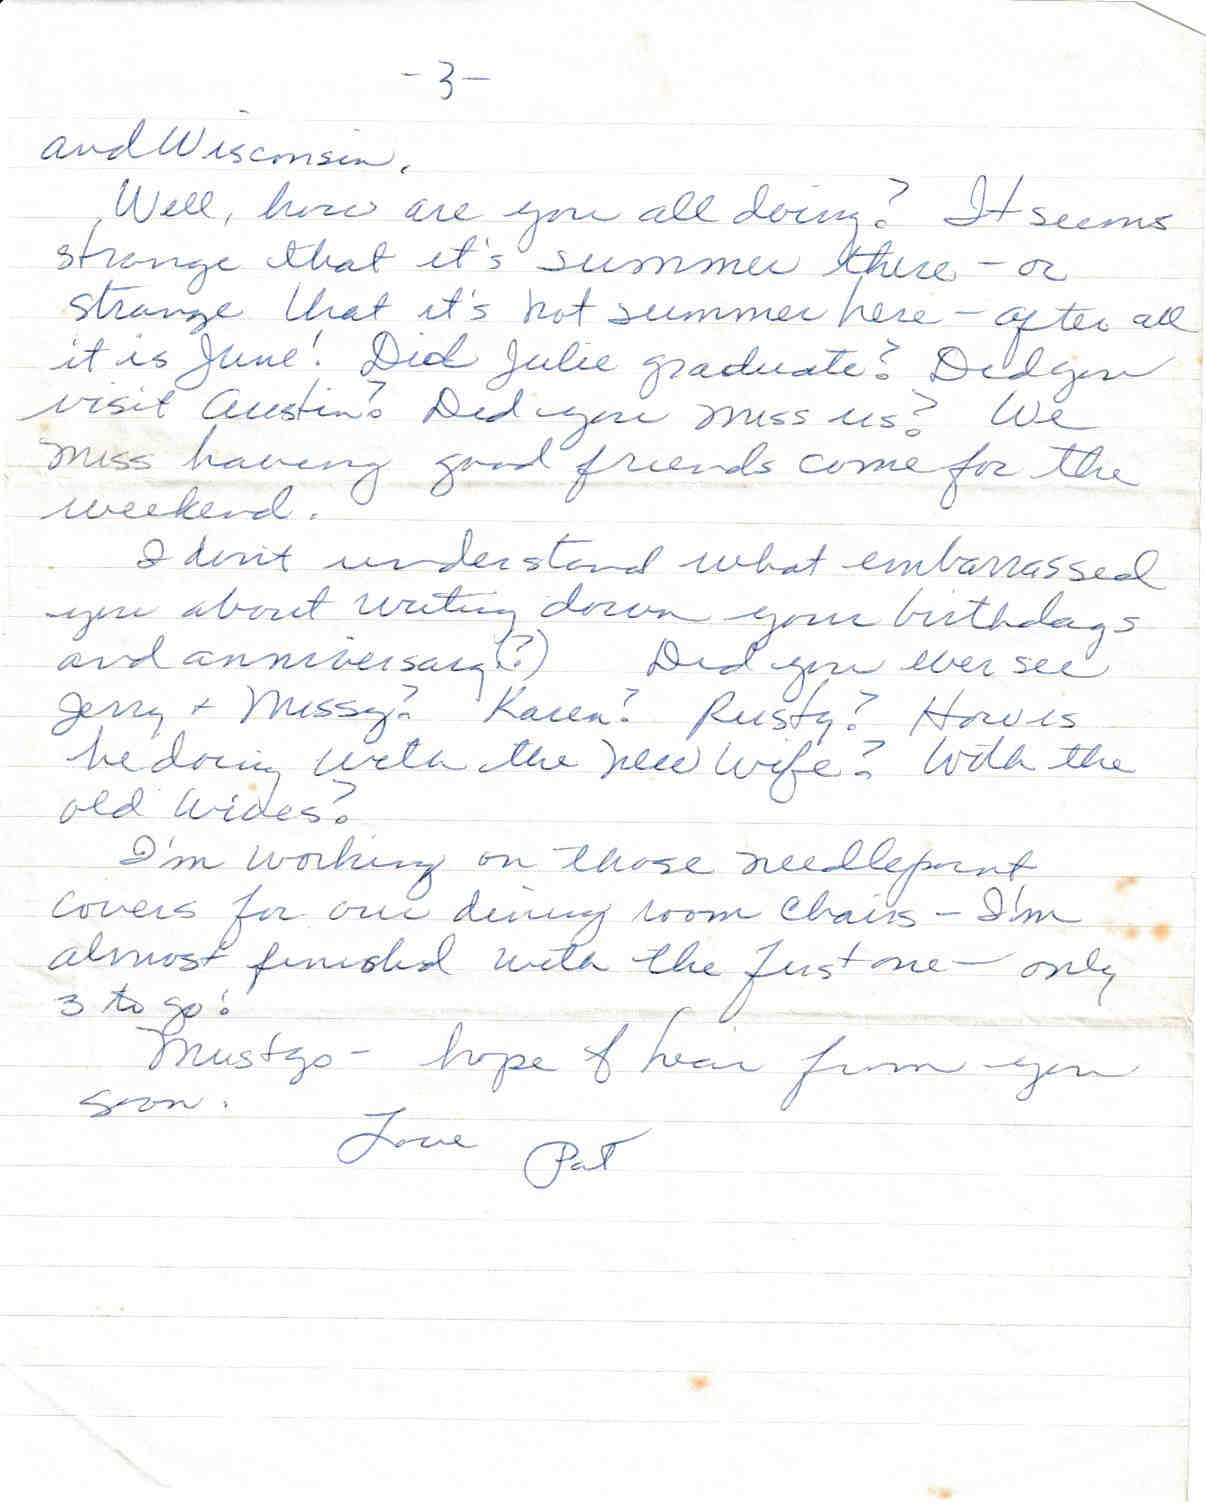 -3-
and Wisconsin.
Well, how are you all doing? It seems
strange that it's summer there - or
strange that it's not summer here - after all
it is June! Did Julie graduate? Did you
visit Austin? Did you miss us? We
miss having good friends come for the
weekend.
I don't understand what embarrassed
you about writing down your birthdays
and anniversary(?) Did you ever see
Jerry + Missy? Karen? Rusty? How is
he doing with the new wife? With the
old wives?
I'm working on those needlepoint
covers for our dining room chairs - I'm
almost finished with the first one - only
3 to go!
Must go - hope to hear from you
soon.
Love Pat